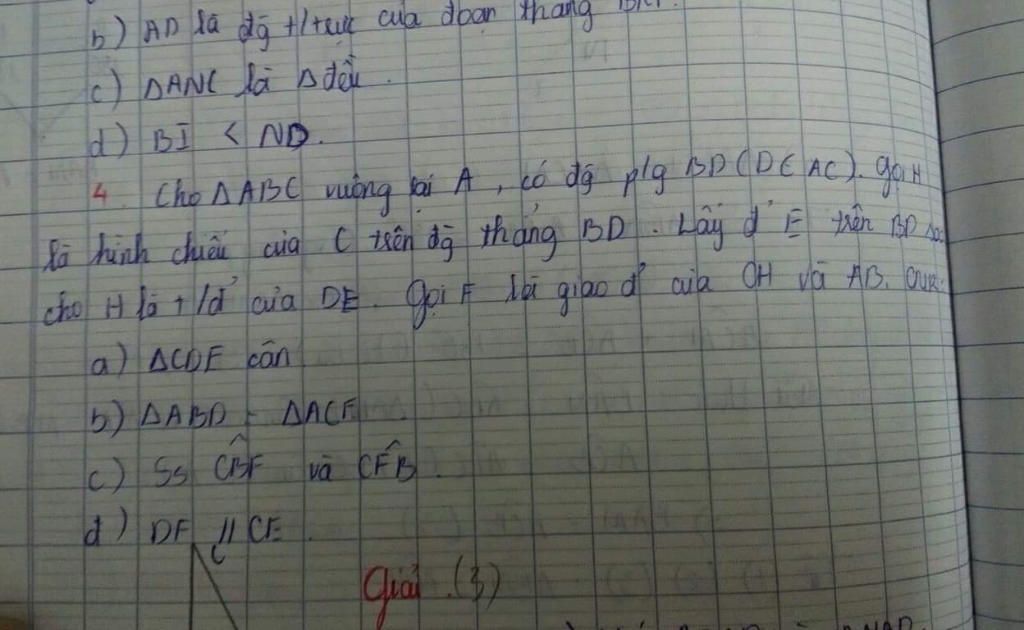 b) AD là đg t/trực của đoạn thẳng
c) ΔANC là Δ đều.
d) BI < ND.
4. Cho ΔABC vuông tại A, có đg p/g BD (D ∈ AC). Gọi H
là hình chiếu của C trên đg thẳng BD. Lấy đ' E trên BD sao
cho H là t/đ' của DE. Gọi F là giao đ' của CH và AB. CMR:
a) ΔCDE cân
b) ΔABD ΔACF
c) SS CB̂F và CF̂B.
d) DF // CE.
Giải (3)